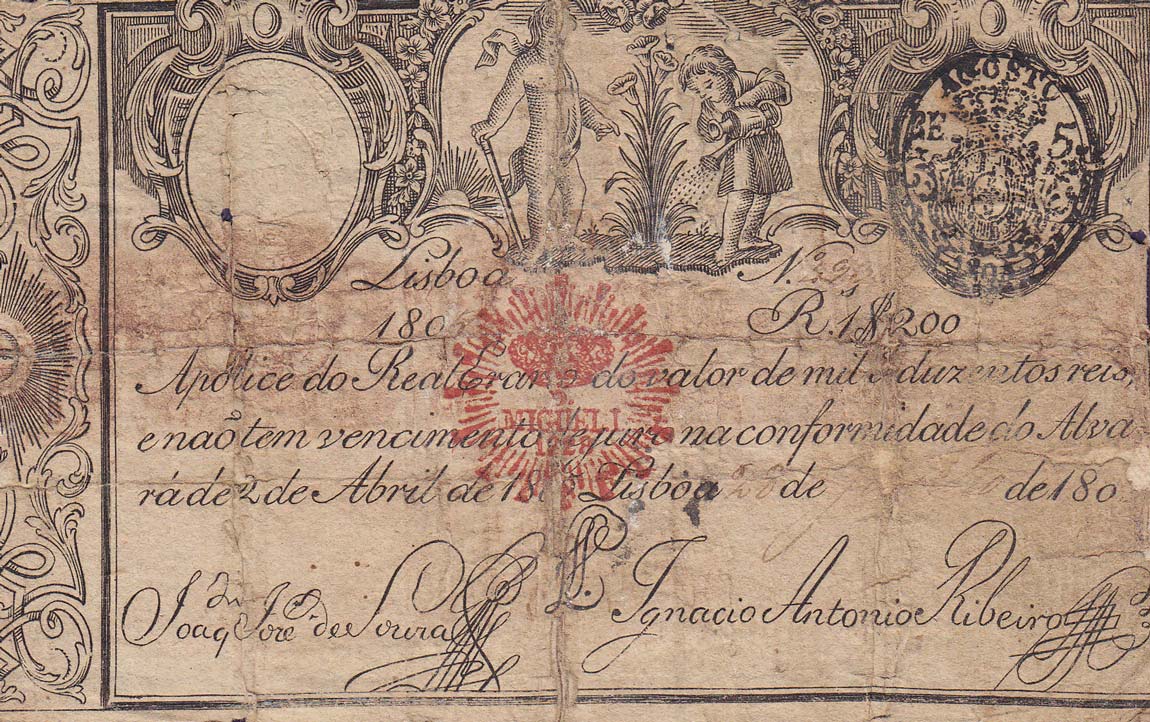 AGOSTO
DE 5.
Lisboa N.
180 R. 1$200
Apolice do Real Erario do valor de mil e duzentos reis,
e naõ tem vencimento de juro na conformidade do Alva-
rá de 2 de Abril de 180 Lisboa 28 de de 180
D.
MIGUEL I.
Joaq.m José de Souza
Ignacio Antonio Ribeiro